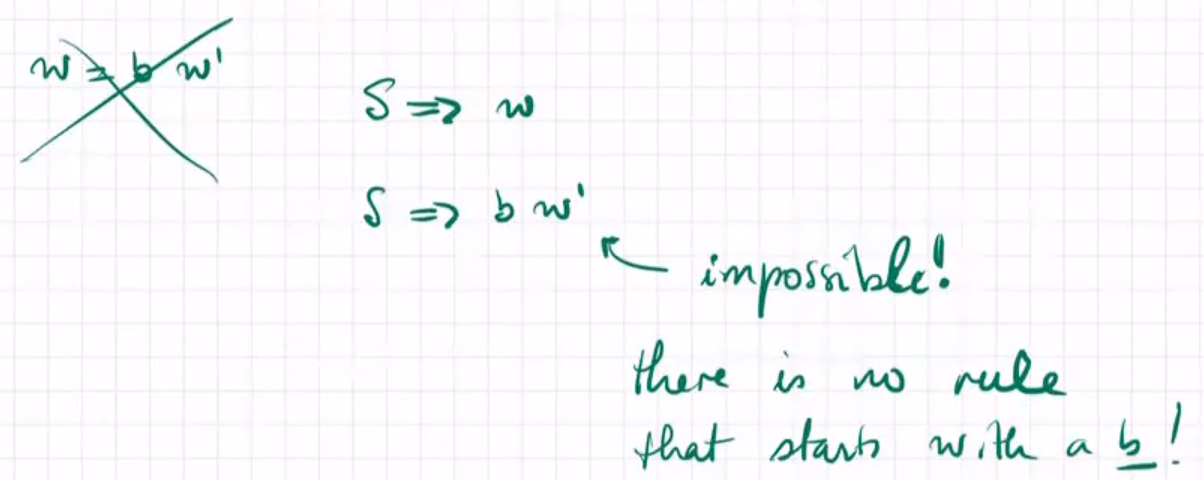 w = b w'
S => w
S => b w'
impossible!
there is no rule
that starts with a b!